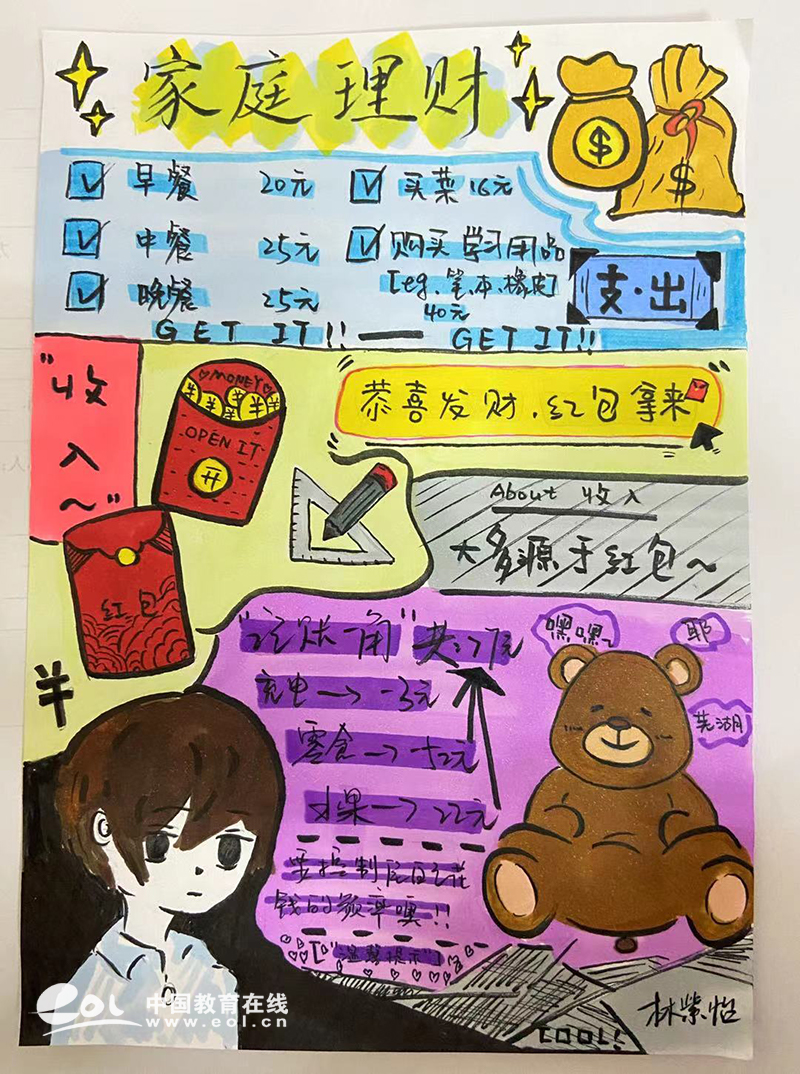 家庭理财
早餐 20元
买菜 16元
中餐 25元
购买学习用品
[eg. 笔、本、橡皮]
40元
晚餐 25元
GET IT!! — GET IT!!
支·出
$
$
"收入~"
MONEY
OPEN IT
开
恭喜发财,红包拿来
About 收入
大多源于红包~
红包
¥
"记账一角" 共:77元
充电→-3元
零食→-52元
水果→22元
钱的频率噢!!
["温馨提示"]
嘿嘿~
耶
芜湖
COOL!
林紫怡
eol 中国教育在线
www.eol.cn